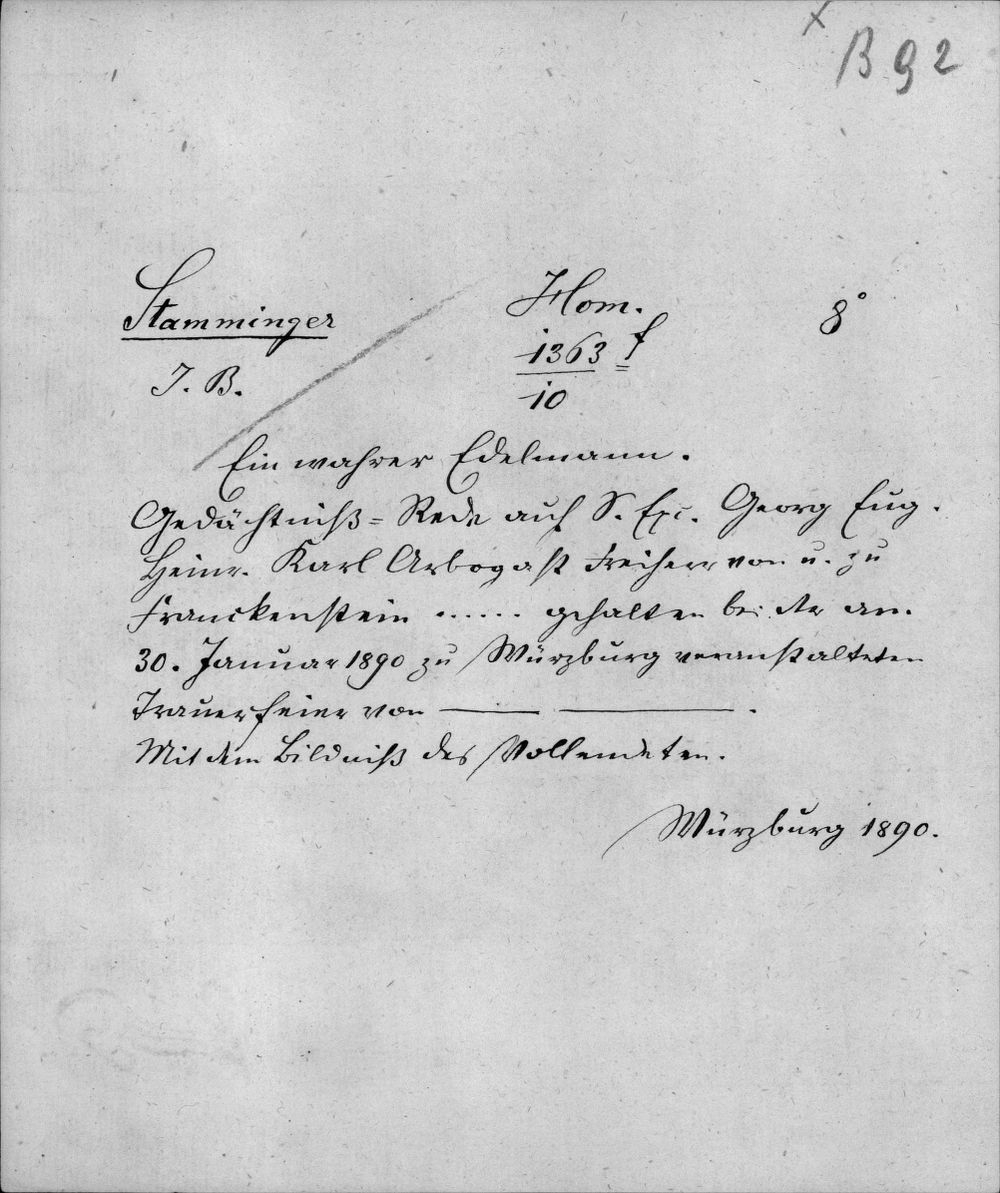 x
B 92
Stamminger
J. B.
Hom. 8°
1363 f
10
Ein wahrer Edelmann.
Gedächtniß=Rede auf S. Exc. Georg Eug.
Heinr. Karl Arbogast Freiherr von u. zu
Franckenstein ...... gehalten bei der am
30. Januar 1890 zu Würzburg veranstalteten
Trauerfeier von — — .
Mit dem Bildniß des Vollendeten.
Würzburg 1890.